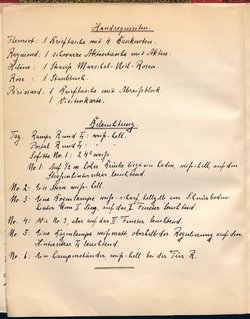 Handrequisiten.
Fleuriot: 1 Brieftasche mit 4 Banknoten.
Raymond: 1 schwarze Aktentasche mit Akten.
1 Strauß Marschal-Niel-Rosen.
Rose: 1 Staubtuch.
1 Brieftasche mit Abreißblock
1 Visitenkarte.
Beleuchtung.
Tag. Rampe R und L: weiß-hell.
Portal R und L:
Soffitte No. 1: weiß.
No. 1: Auf der Brücke liegend ein Laden, weiß-hell auf den
leuchtend.
No. 2: Ein Stern weiß-hell.
No. 3: Eine Bogenlampe weiß-scharf hellgelb am Schnürboden
hinter dem I. Bog, auf das I. Fenster leuchtend.
No. 4: Wie No. 3, aber auf das II. Fenster leuchtend.
No. 5: Eine Bogenlampe weiß matt, oberhalb der Regulierung auf den
leuchtend.
No. 6: Ein Lampenständer weiß-hell bei der Tür R.